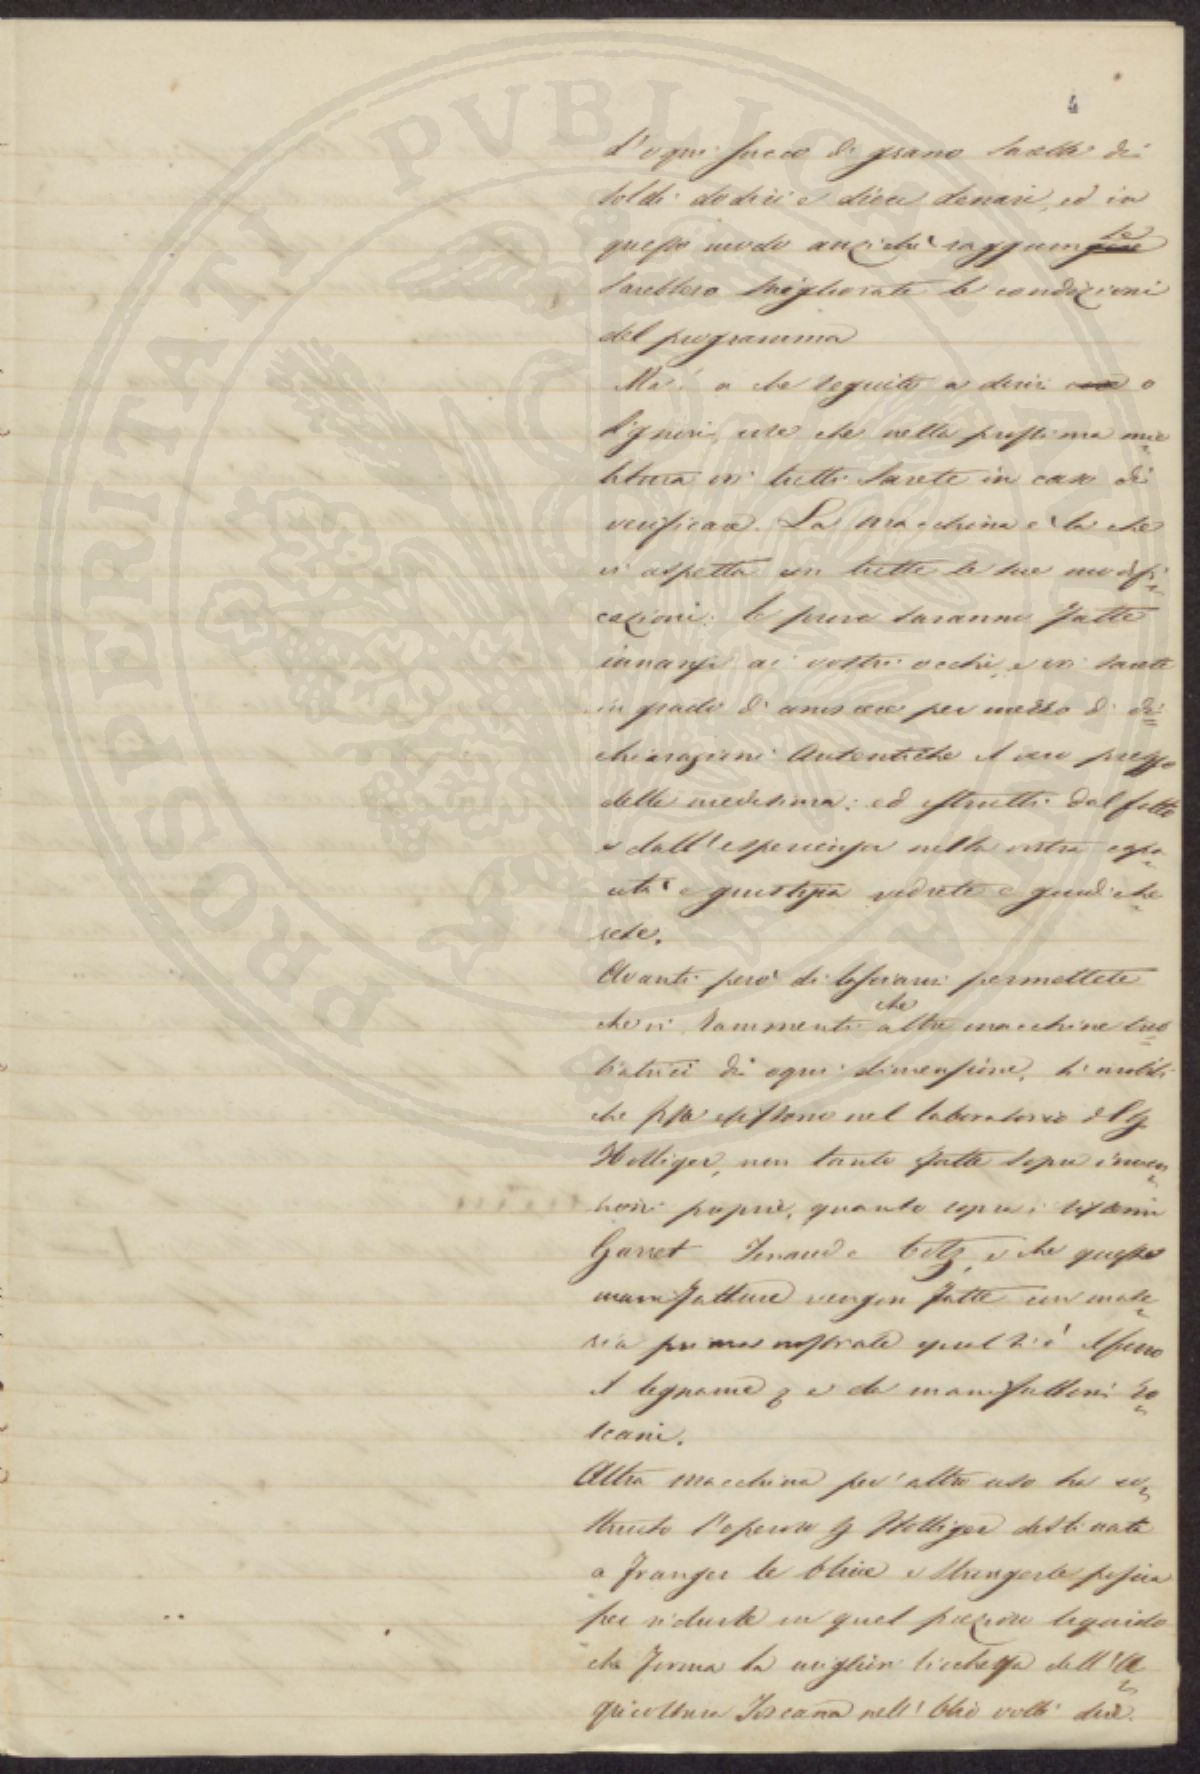 4
d'ogni sacco di grano sarebbe di
soldi dodici e dieci denari, ed in
questo modo anziche raggiungere te
sarebbero migliorate le condizioni
del programma
Ma! a che seguito a dirvi o
Signori, cose che nella prossima mie
titura voi tutti sarete in caso di
verificare. La macchina e là che
vi aspetta con tutte le sue modifi
cazioni: le prove saranno fatte
innanzi ai vostri occhi, e voi sarete
in grado di conoscere per mezzo di di
chiarazioni autentiche il vero prezzo
della medesima: ed istruiti dal fatto
e dall'esperienza nella vostra capa
cità e giustizia vedrete e giudiche
rete.
Avanti però di lasciarvi permettete
che vi rammenti che altre macchine treb
biatrici di ogni dimensione, sì mobili
che fisse esistono nel laboratorio del Sig.
Holliger, non tanto fatte sopra inven
zioni proprie, quanto sopra i sistemi
Garret Renaud e Lotz, e che queste
manifatture vengon fatte con mate
ria prima nostrale qual si è il ferro
il legname & e da manifattori To
scani.
Altra macchina per altro uso ha co
struito l'operoso Sig. Holliger destinata
a franger le olive e stringerle poscia
per ridurle in quel prezioso liquido
che forma la miglior ricchezza dell'A
gricoltura Toscana nell'olio volli dire.
PROSPERITATI PVBLICAE AVGENDAE